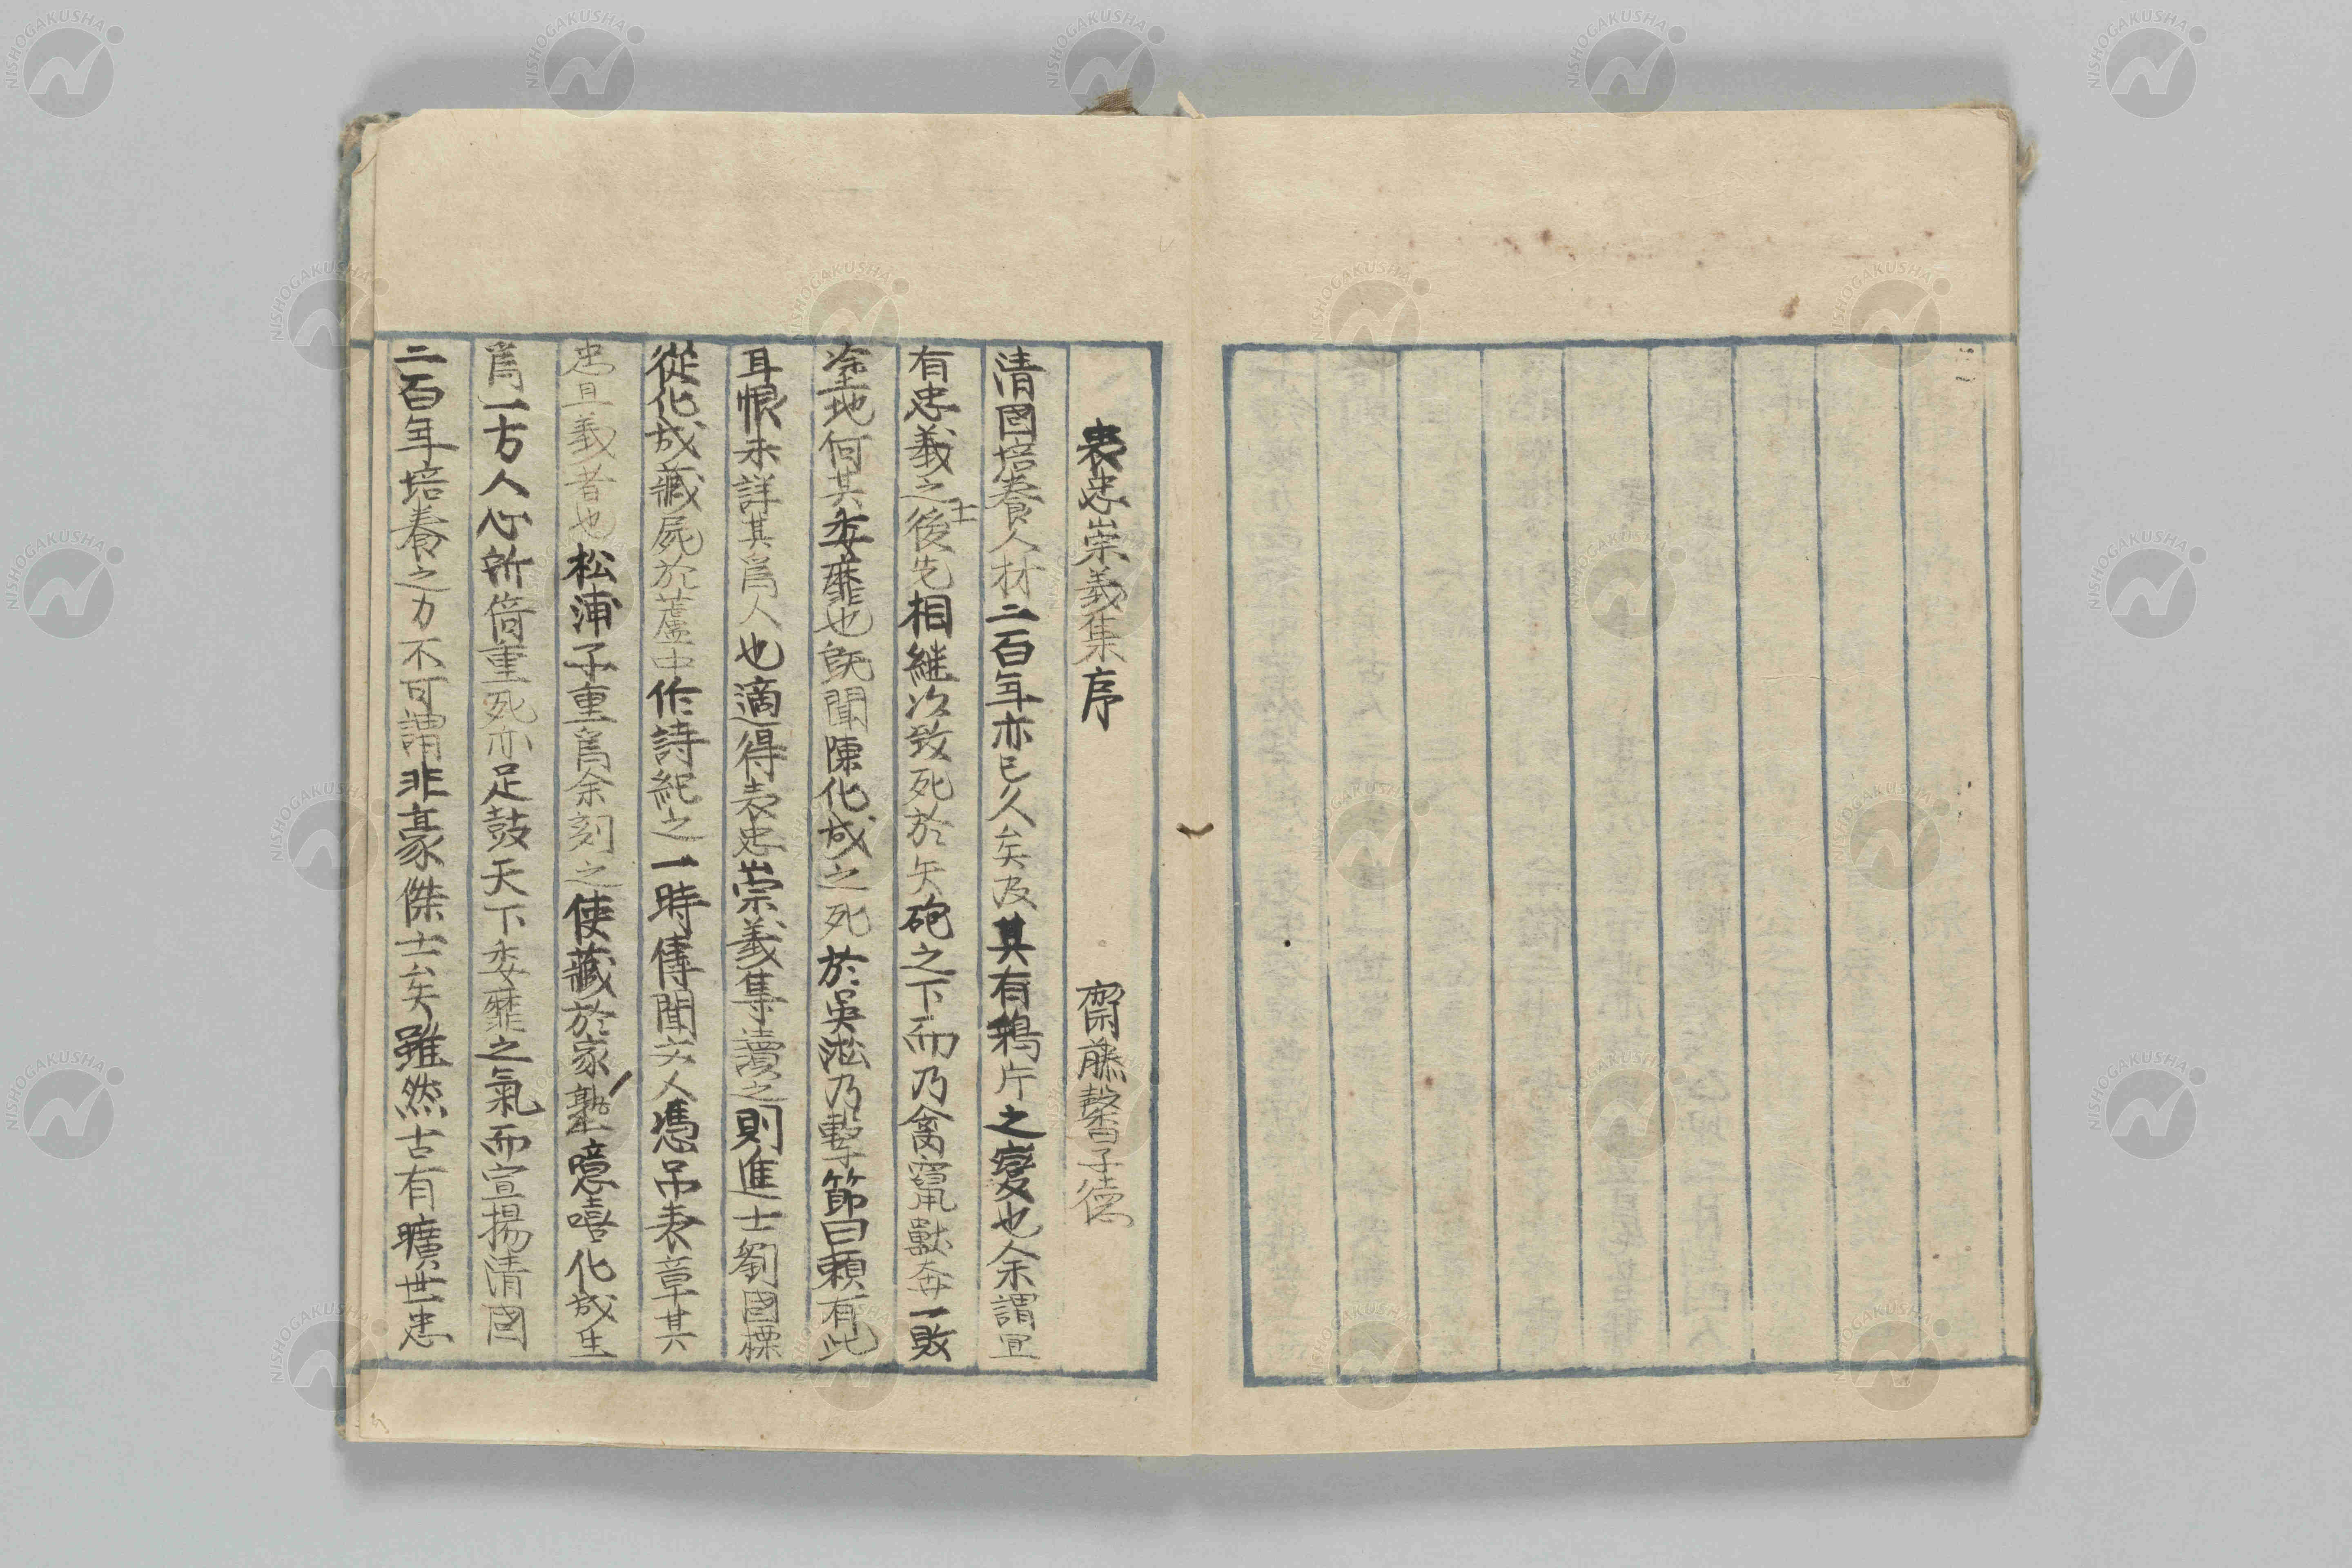 表忠崇義集序 齋藤馨子德
清國培養人材二百年亦已久矣及其有鴉片之變也余謂宜
有忠義之士後先相継次致死於矢砲之下而乃禽竄獸奔一敗
塗地何其委靡也既聞陳化成之死於吳淞乃擊節曰賴有此
耳恨未詳其爲人也適得表忠崇義集讀之則進士劉國標
從化成藏屍於蘆中作詩紀之一時傳聞文人憑吊表章其
忠且義者也松浦子重爲余刻之使藏於家塾噫嘻化成生
爲一方人心所倚重死亦足鼓天下委靡之氣而宣揚清國
二百年培養之力不可謂非豪傑士矣雖然古有曠世忠
NISHOGAKUSHA